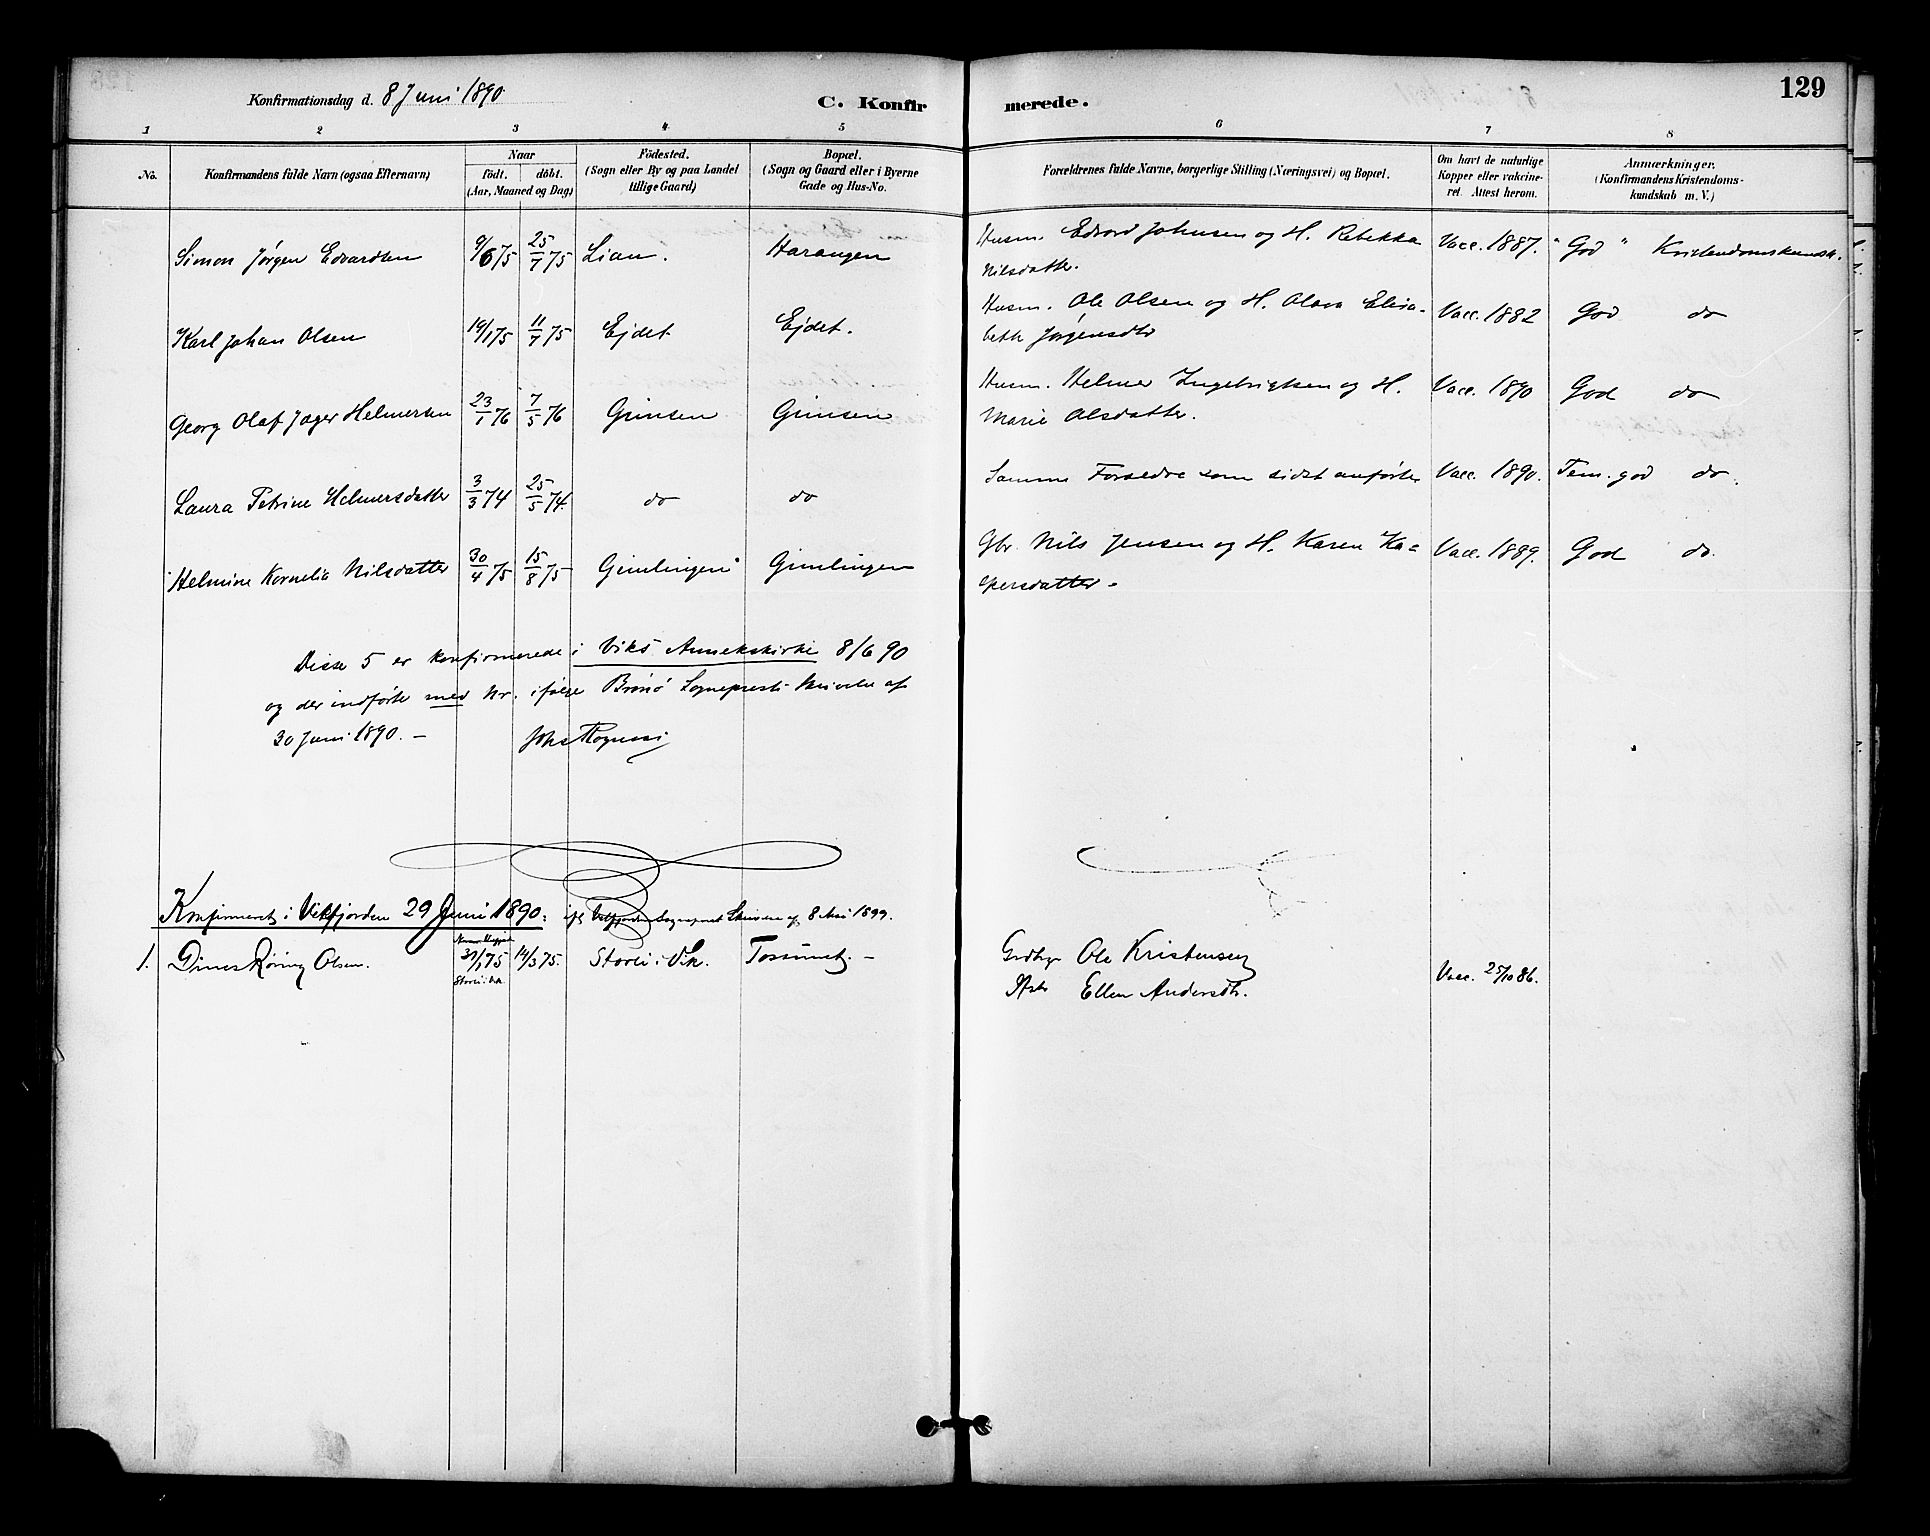 129
Konfirmationsdag d. 8 Juni 1890
C. Konfirmerede.
1 2 3 4 5 6 7 8
No.
Konfirmandens fulde Navn (ogsaa Efternavn)
Naar
födt. döbt.
(Aar, Maaned og Dag)
Födested.
(Sogn eller By og paa Landet
tillige Gaard)
Bopæl.
(Sogn og Gaard eller i Byerne
Gade og Hus-No.
Forældrenes fulde Navne, borgerlige Stilling (Næringsvei) og Bopæl.
Om havt de naturlige
Kopper eller vakcine-
ret. Attest herom.
Anmærkninger.
(Konfirmandens Kristendoms-
kundskab m. V.)
Simon Jørgen Edvardsen 9/6 75 25/7 75 Lian. Harangen Husm. Edvard Johnsen og H. Rebekka Vacc. 1887. "God" Kristendomskundsk.
Nilsdatter.
Karl Johan Olsen 19/1 75 11/7 75 Ejdet Ejdet. Husm. Ole Olsen og H. Olava Elisa- Vacc. 1882 God do
beth Jørgensdtr
Georg Olaf Jager Helmersen 23/1 76 7/5 76 Grimsen Grimsen Husm. Helmer Ingebrigtsen og H. Vacc. 1890 God do
Marie Olsdatter.
Laura Petrine Helmersdatter 3/3 74 25/5 74. do do Samme Forældre som sidst anførte Vacc. 1890. Tem. god do.
Helmine Kornelia Nilsdatter 30/4 75 15/8 75 Gimlingen Gimlingen Gbr. Nils Jensen og H. Karen Ka- Vacc. 1889. God do.
spersdatter.
Disse 5 er konfirmerede i Viks Annekskirke 8/6 90
og der indførte med Nr. ifølge Brønø Sogneprests Skrivelse af
30 Juni 1890. —
Konfirmeret i Velfjorden 29 Juni 1890. ifl. Velfjorden Sogneprest Skrivelse af 8 Mai 1899.
1. Dines Røring Olsen. 31/1 75 14/3 75. Storli i Vik. Tosundet. — Grdbgr Ole Kristensen
Storli i Vik Hstr Ellen Andersdtr. Vacc. 25/10 86.